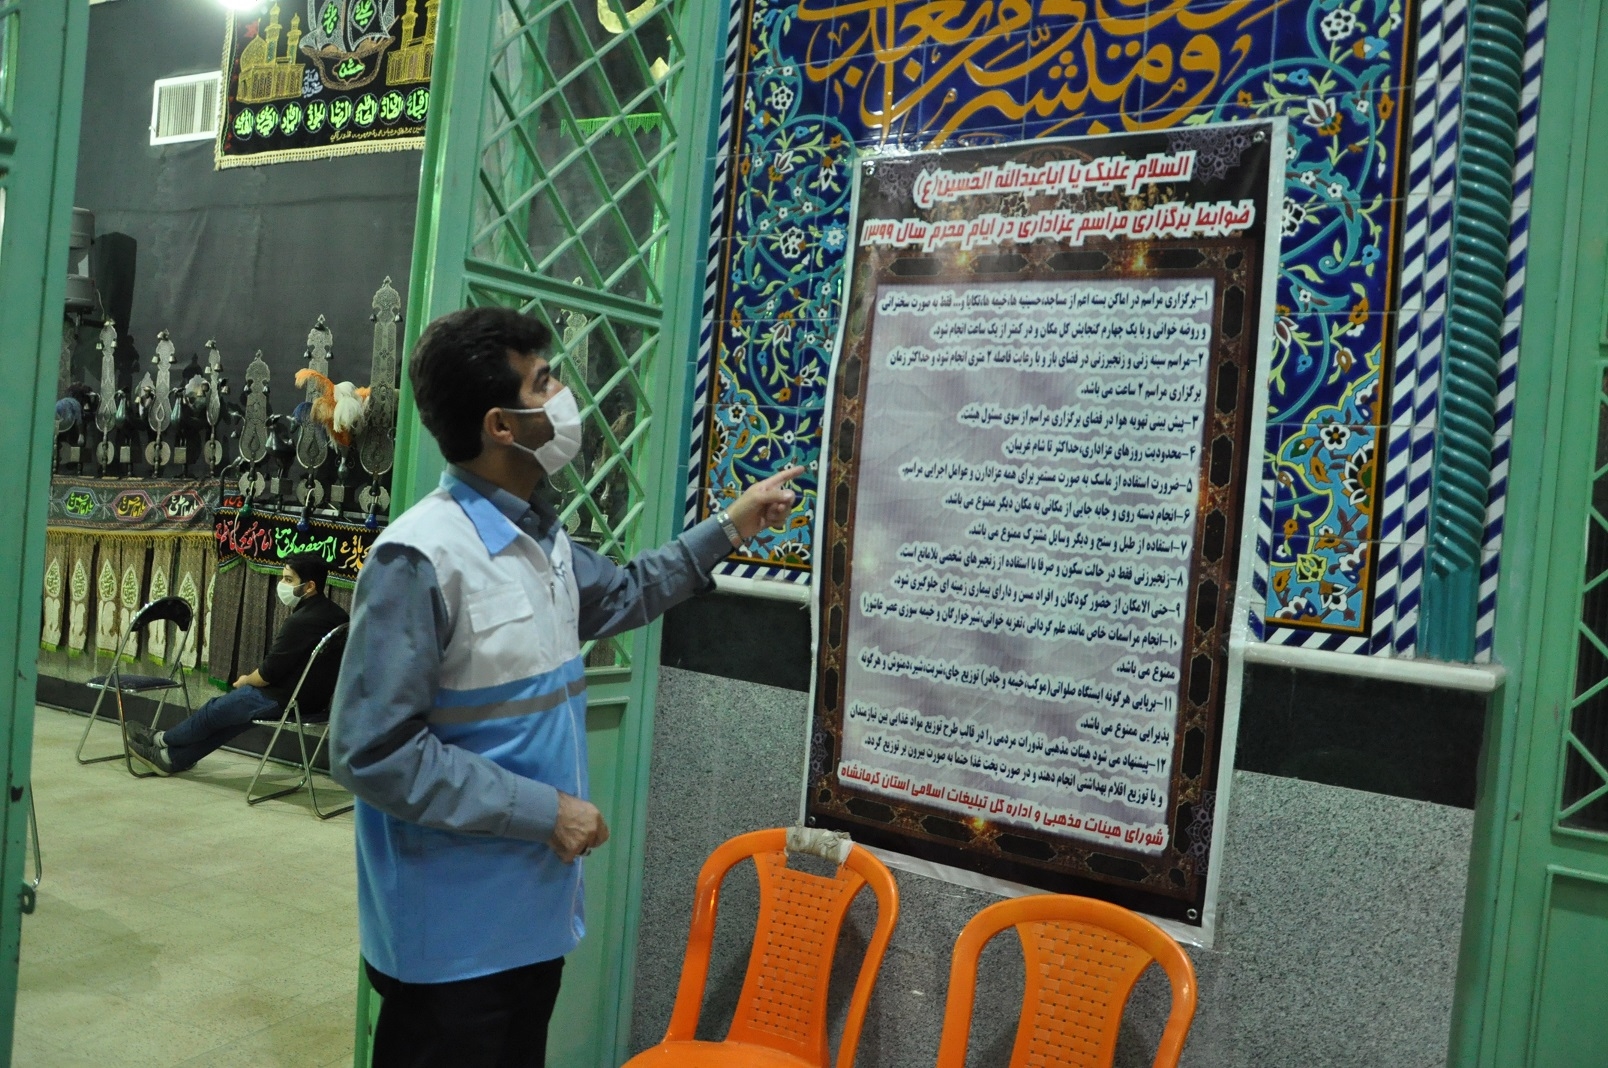 السلام علیک یا اباعبدالله الحسین(ع)
ضوابط برگزاری مراسم عزاداری در ایام محرم سال ۱۳۹۹
۱-برگزاری مراسم در اماکن بسته اعم از مساجد،حسینیه ها،خیمه ها،تکایا و... فقط به صورت سخنرانی
و روضه خوانی و با یک چهارم گنجایش کل مکان و در کمتر از یک ساعت انجام شود.
۲-مراسم سینه زنی و زنجیرزنی در فضای باز و با رعایت فاصله ۲ متری انجام شود و حداکثر زمان
برگزاری مراسم ۲ ساعت می باشد.
۳-پیش بینی تهویه هوا در فضای برگزاری مراسم از سوی مسئول هیئت.
۴-محدودیت روزهای عزاداری،حداکثر تا شام غریبان.
۵-ضرورت استفاده از ماسک به صورت مستمر برای همه عزادارن و عوامل اجرایی مراسم.
۶-انجام دسته روی و جابه جایی از مکانی به مکان دیگر ممنوع می باشد.
۷-استفاده از طبل و سنج و دیگر وسایل مشترک ممنوع می باشد.
۸-زنجیرزنی فقط در حالت سکون و صرفا با استفاده از زنجیرهای شخصی بلامانع است.
۹-حتی الامکان از حضور کودکان و افراد مسن و دارای بیماری زمینه ای جلوگیری شود.
۱۰-انجام مراسمات خاص مانند علم گردانی ،تعزیه خوانی،شیرخوارگان و خیمه سوزی عصر عاشورا
ممنوع می باشد.
۱۱-برپایی هرگونه ایستگاه صلواتی(موکب،خیمه و چادر) توزیع چای،شربت،شیر،دمنوش و هرگونه
پذیرایی ممنوع می باشد.
۱۲-پیشنهاد می شود هیئات مذهبی نذورات مردمی را در قالب طرح توزیع مواد غذایی بین نیازمندان
و یا توزیع اقلام بهداشتی انجام دهند و در صورت پخت غذا حتما به صورت بیرون بر توزیع گردد.
شورای هیئات مذهبی و اداره کل تبلیغات اسلامی استان کرمانشاه